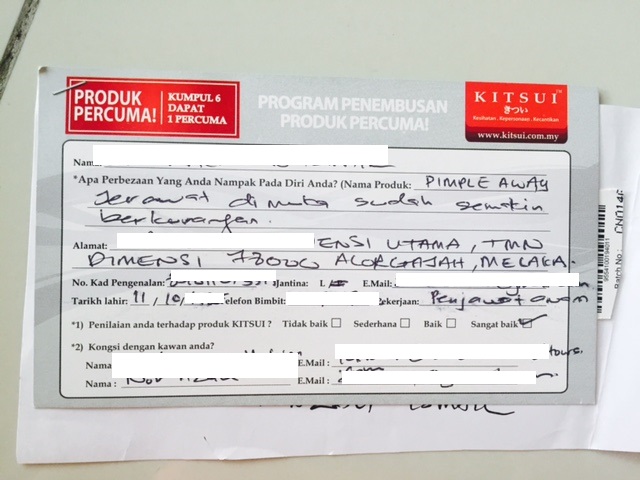 PRODUK PERCUMA!
KUMPUL 6 DAPAT 1 PERCUMA
PROGRAM PENEMBUSAN PRODUK PERCUMA!
KITSUI™
きつい
Kesihatan . Kepenawaan . Kecantikan
www.kitsui.com.my
Nama
*Apa Perbezaan Yang Anda Nampak Pada Diri Anda? (Nama Produk: PIMPLE AWAY
Jerawat dimuka sudah semakin
berkurangan.
Alamat: ENSI UTAMA, TMN
DIMENSI 78000 ALORGAJAH, MELAKA.
No. Kad Pengenalan: Jantina: L E.Mail:
Tarikh lahir: 11 / 10 / Telefon Bimbit: Pekerjaan: Penjawat awam
*1) Penilaian anda terhadap produk KITSUI ? Tidak baik Sederhana Baik Sangat baik ✓
*2) Kongsi dengan kawan anda?
Nama E.Mail : tours.
Nama : E.Mail :
Batch No : CN0146
9554100194011